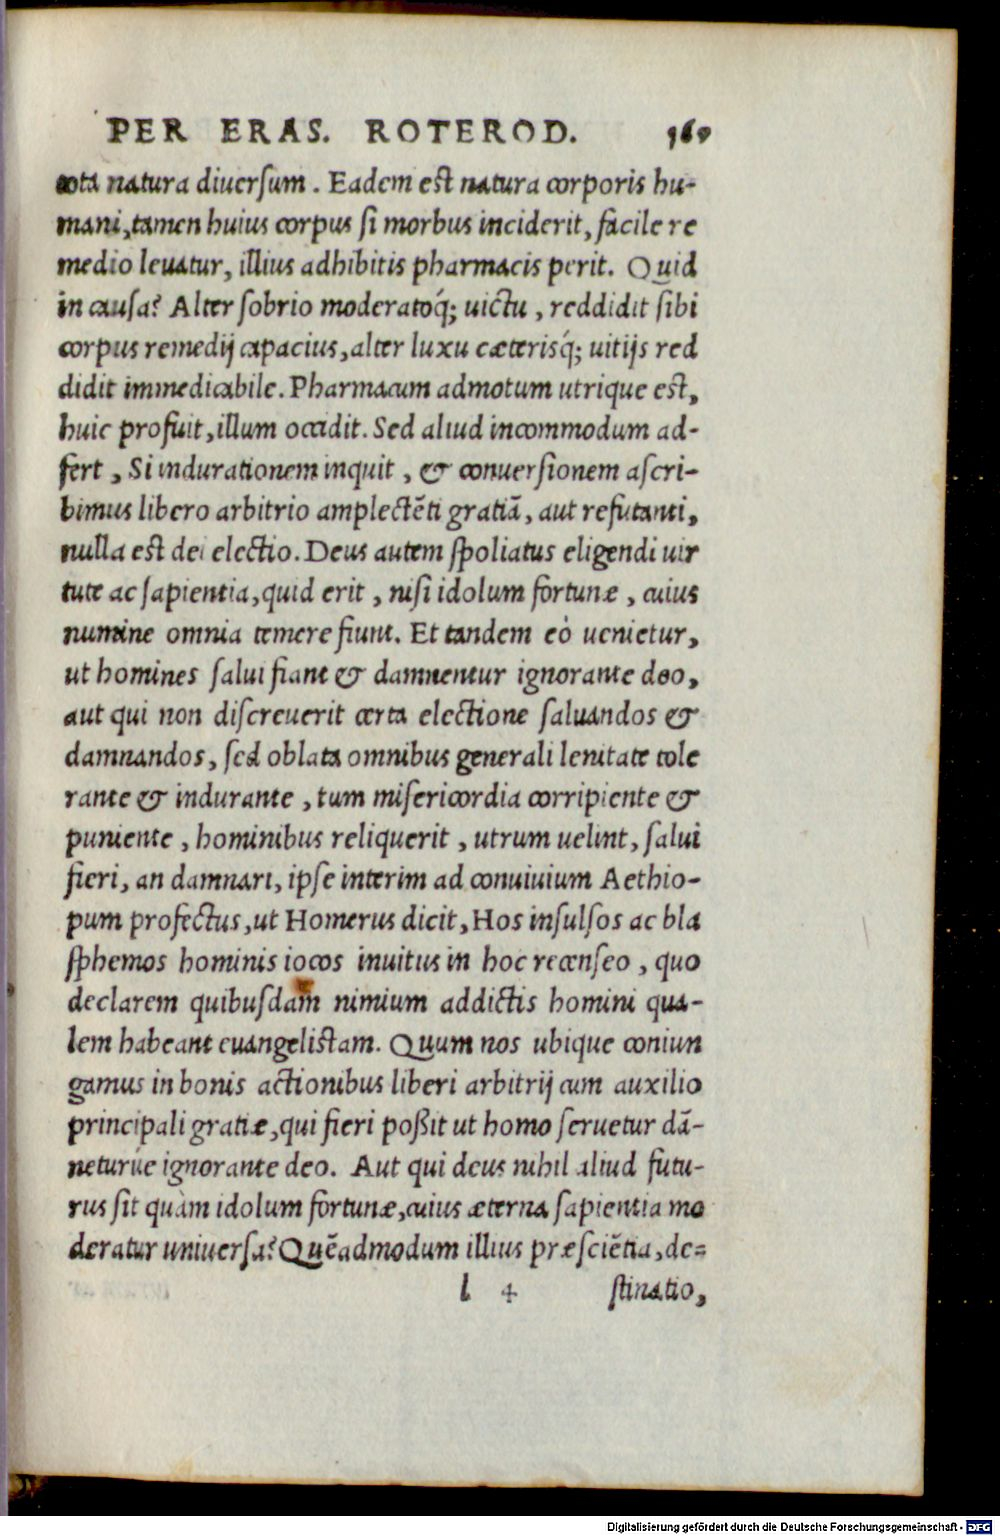 PER ERAS. ROTEROD. 169
tota natura diuersum. Eadem est natura corporis hu-
mani, tamen huius corpus si morbus inciderit, facile re
medio leuatur, illius adhibitis pharmacis perit. Quid
in causa? Alter sobrio moderatoq́; uictu, reddidit sibi
corpus remedij capacius, alter luxu cæterisq́; uitijs red
didit immedicabile. Pharmacum admotum utrique est,
huic profuit, illum occidit. Sed aliud incommodum ad-
fert, Si indurationem inquit, & conuersionem ascri-
bimus libero arbitrio amplectẽti gratiã, aut refutanti,
nulla est dei electio. Deus autem spoliatus eligendi uir
tute ac sapientia, quid erit, nisi idolum fortunæ, cuius
numine omnia temere fiunt. Et tandem eò uenietur,
ut homines salui fiant & damnentur ignorante deo,
aut qui non discreuerit certa electione saluandos &
damnandos, sed oblata omnibus generali lenitate tole
rante & indurante, tum misericordia corripiente &
puniente, hominibus reliquerit, utrum uelint, salui
fieri, an damnari, ipse interim ad conuiuium Aethio-
pum profectus, ut Homerus dicit, Hos insulsos ac bla
sphemos hominis iocos inuitus in hoc recenseo, quo
declarem quibusdam nimium addictis homini qua-
lem habeant euangelistam. Quum nos ubique coniun
gamus in bonis actionibus liberi arbitrij cum auxilio
principali gratiæ, qui fieri poßit ut homo seruetur dã-
neturúe ignorante deo. Aut qui deus nihil aliud futu-
rus sit quàm idolum fortunæ, cuius æterna sapientia mo
deratur uniuersa? Quẽadmodum illius præsciẽtia, de-
l 4 stinatio,
Digitalisierung gefördert durch die Deutsche Forschungsgemeinschaft - DFG